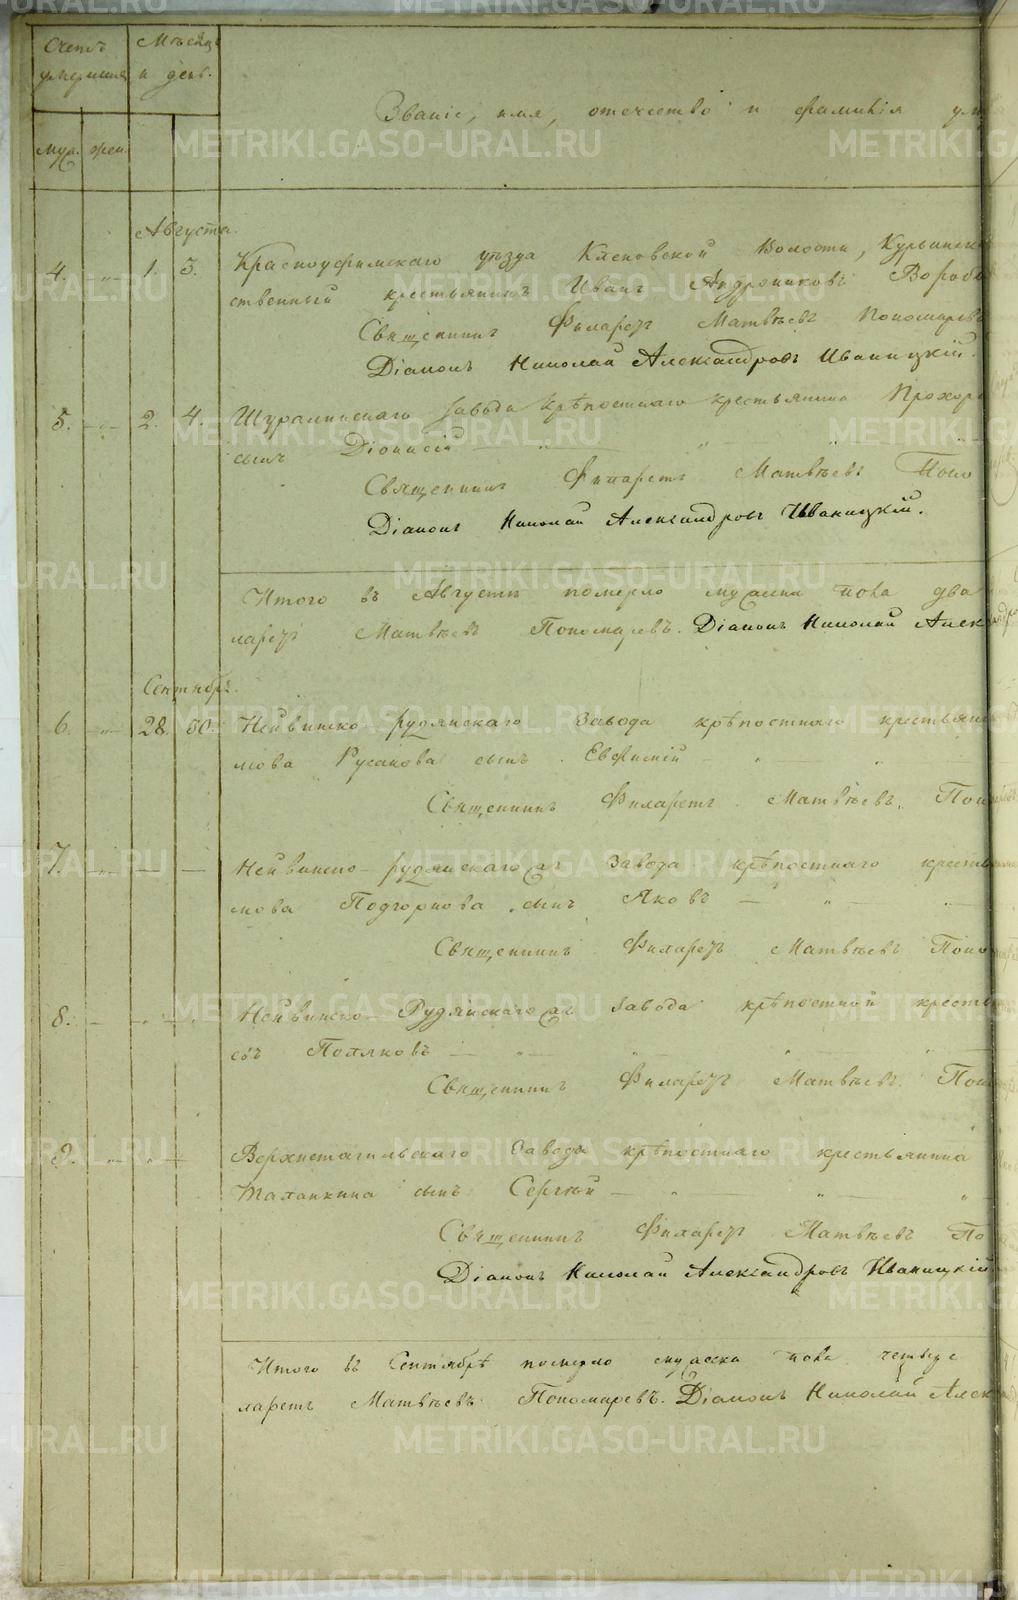 Счетъ умершихъ
Мѣсяцъ и день.
муж. жен.
Званіе, имя, отечество и фамилія
Августа.
4. " 1. 3. Красноуфимскаго уѣзда Кленовской Волости,
ственный крестьянинъ Иванъ Андрониковъ
Священникъ Филаретъ Матвѣевъ Пономаревъ
Діаконъ Николай Александровъ Иваницкій.
5. " 2. 4. Шуралинскаго завода крѣпостнаго крестьянина
сынъ Діонисій — " — " — "
Священникъ Филаретъ Матвѣевъ
Діаконъ Николай Александровъ Иваницкій.
Итого въ Августѣ померло мужеска пола два
ларетъ Матвѣевъ Пономаревъ. Діаконъ Николай
Сентябрь.
6. " 28. 30. Нейвинско-рудянскаго Завода крѣпостнаго
мова Русакова сынъ Евфимій — " — "
Священникъ Филаретъ Матвѣевъ.
7. " — — Нейвинско-рудянскаго завода крѣпостнаго
мова Подгорнова сынъ Яковъ — " —
Священникъ Филаретъ Матвѣевъ
8. — Нейвинско-Рудянскаго завода крѣпостной
евъ Поляковъ — " — " "
Священникъ Филаретъ Матвѣевъ.
9. " " — Верхнетагильскаго Завода крѣпостнаго крестьянина
Таланкина сынъ Сергѣй — " " "
Священникъ Филаретъ Матвѣевъ
Діаконъ Николай Александровъ Иваницкій.
Итого въ Сентябрѣ померло мужеска пола четыре
ларетъ Матвѣевъ Пономаревъ. Діаконъ Николай
METRIKI.GASO-URAL.RU